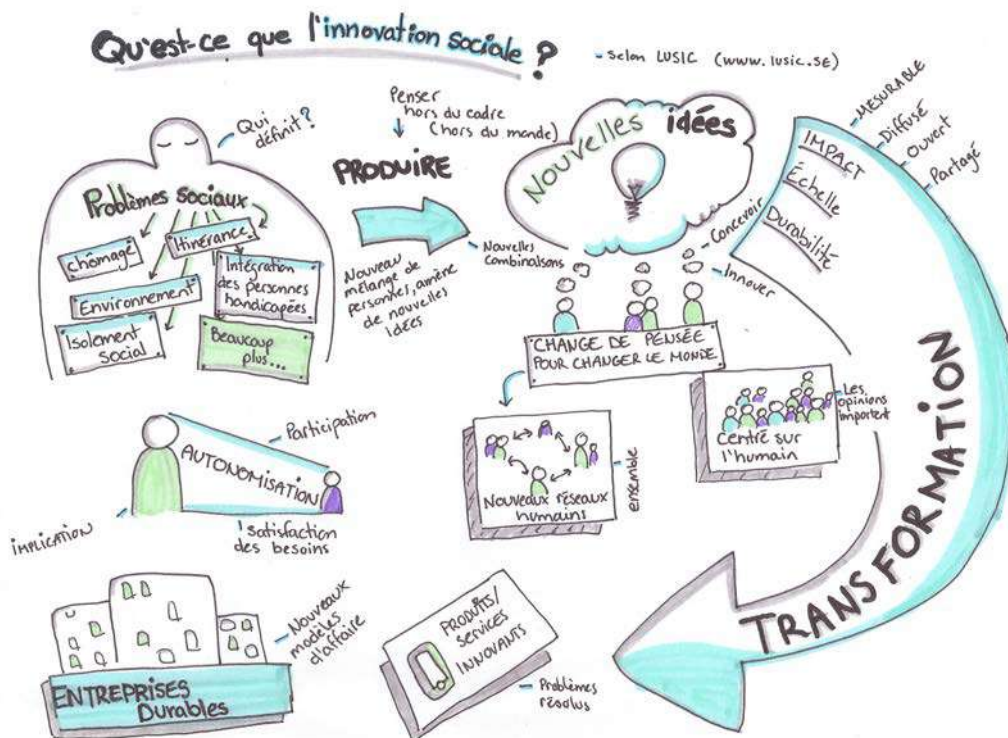 Qu'est-ce que l'innovation sociale ?
- selon LUSIC (www.lusic.se)
Qui
définit?
Problèmes sociaux
chômage
Itinérance
Environnement
Intégration
des personnes
handicapées
Isolement
social
Beaucoup
plus...
Penser
hors du cadre
(hors du monde)
PRODUIRE
Nouveau
mélange de
personnes, amène
de nouvelles
idées
Nouvelles
combinaisons
Nouvelles idées
Concevoir
Innover
CHANGE DE PENSÉE
POUR CHANGER LE MONDE
IMPACT
Échelle
Durabilité
MESURABLE
Diffusé
Ouvert
Partagé
Nouveaux réseaux
humains
ensemble
Centré sur
l'humain
Les
opinions
importent
TRANSFORMATION
Participation
AUTONOMISATION
IMPLICATION
satisfaction
des besoins
Nouveaux
modèles
d'affaire
ENTREPRISES
Durables
PRODUITS/
Services
INNOVANTS
Problèmes
résolus